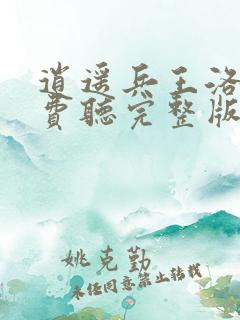 逍遥兵王洛
費聽完整版
姚克勤
未经同意禁止转载